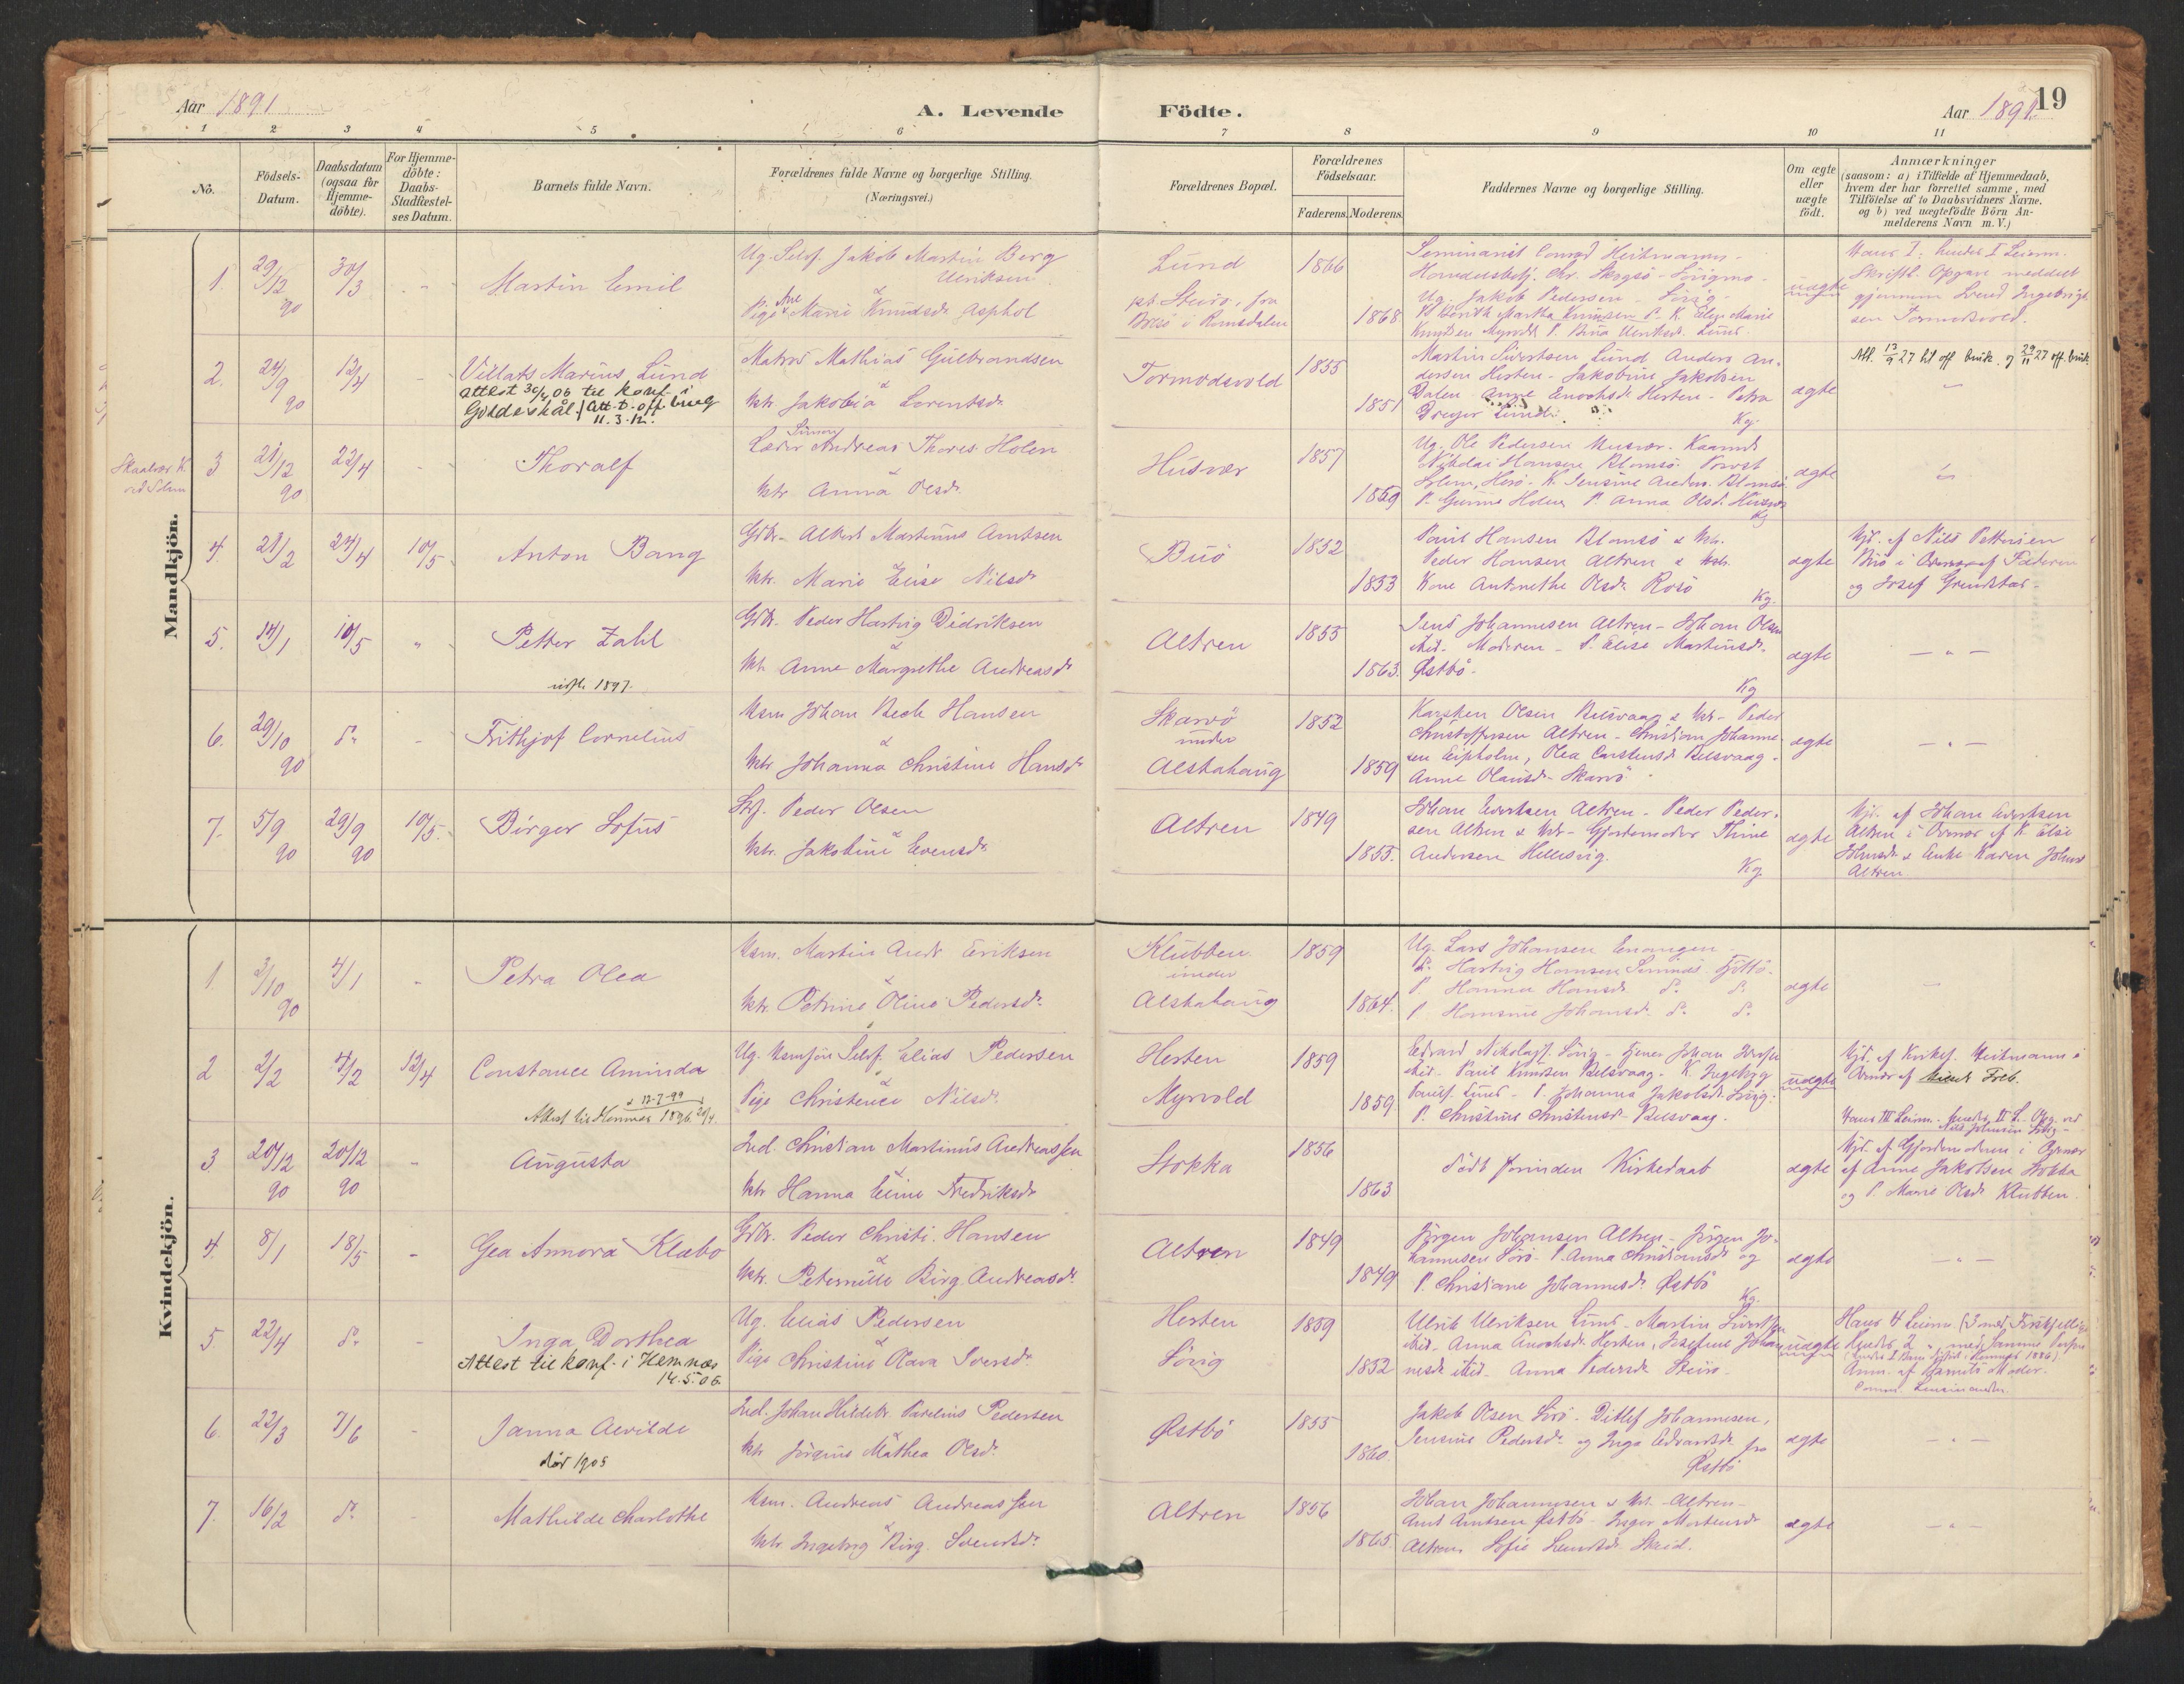 Aar 1891
A. Levende Födte.
Aar 1891.
19
1 2 3 4 5 6 7 8 9 10 11
No.
Födsels-Datum.
Daabsdatum (ogsaa for Hjemme-döbte).
For Hjemme-döbte: Daabs-Stadfæstel-ses Datum.
Barnets fulde Navn.
Forældrenes fulde Navne og borgerlige Stilling. (Næringsvei.)
Forældrenes Bopæl.
Forældrenes Födselsaar.
Faderens. Moderens.
Faddernes Navne og borgerlige Stilling.
Om ægte eller uægte födt.
Anmærkninger
(saasom: a) i Tilfælde af Hjemmedaab,
hvem der har forrettet samme, med
Tilföielse af to Daabsvidners Navne.
og b) ved uægtefödte Börn An-
melderens Navn m. V.)
Mandkjön.
1. 29/12 90 30/3 Martin Emil
Ug. Selvf. Jakob Martin Berg
Ulriksen
&
Pige Ane Marie Knudsdr Asphol
Lund
pt. Sturö, fra
i Romsdalen
1866
1868
Seminarist Conrad Heitmann -
Ug. Jakob Pedersen - Sövig -
uægte
Hans I. hendes I Leierm.
Skriftl. Opgave meddelt
gjennem Svend Ingebrigt-
sen Tormodsvold.
2. 24/9 90 12/4 Villats Marius Lund
attest 30/4 06 til konf. i
Gildeskål. / Att. t. off. brug
11.3.12.
Matros Mathias Gulbrandsen
&
Ktr. Jakobia Lorentsdr
Tormodsvold
1855
1851
Martin Sivertsen Lund Anders An-
dersen Hesten - Jakobine Jakobsen
Dalen Anne Enochsdr Hesten - Petra
Dreyer Lund.
Kg.
ægte
Att. 13/9 27 til off. bruk. og 29/11 27 off. bruk.
Skaalvær K.
3 21/12 90 22/4 Thoralf
Simon
Andreas Thores. Holen
&
Ktr Anna Olsdr
Husvær
1857
1859
Ug. Ole Pedersen Husvær.
Nikolai Hansen Blomsö. Provst
Holm, Herö - K. Jensine Anders. Blomsö
P. Gunna Holen P. Anna Olsdr. Husvær
Kg
ægte
4. 21/2 24/4 10/5 Anton Bang
Gdbr. Albert Martinus Arntsen
Ktr. Marie Elise Nilsdr
Buö
1852
1853
Paul Hansen Blomsö & Ktr.
Peder Hansen Altren & Ktr.
Kone Antonethe Olsdr. Rosö
Kg.
ægte
Hjd. af Nils Pettersen
Buö i Overvær af Faderen
og Josef Grundstad -
5. 14/1 10/5 " Petter Zahl
1897.
Gdbr. Peder Hartvig Didriksen
&
Ktr Anne Margrethe Andreasdr
Altren
1855
1863.
Jens Johannesen Altren - Johan Olsen
ibid. Moderen - P. Elise Martinsdr.
Østbö -
Kg
ægte
— " —
6. 29/10 90 dº Frithjof Cornelius
Hsm Johan Bech Hansen
&
Ktr Johanna Christine Hansdr
Skarvö
under
Alstahaug
1852
1859
Karsten Olsen Belsvaag & Ktr - Peder
Christoffersen Altren - Christian Johanne-
sen Eipholm, Olea Carstensdr Belsvaag -
Anne Olausdr. Skarvö
ægte
— " —
7. 5/9 90 29/9 90 10/5. Birger Sofus
Peder Olsen
&
Ktr. Jakobine Evensdr.
Altren
1849
1855.
Johan Evertsen Altren - Peder Peder-
sen Altren & Ktr - Gjordemoder Thine
Andersen Hellesvig.
Kg
ægte
Hjd. af Johan Evertsen
Altren i Overvær af K. Else
Johnsdr & Enke Karen Johnsdr
Altren
Kvindekjön.
1. 3/10 90 4/1 Petra Olea
Hsm. Martin Andr Eriksen
&
Ktr. Petrine Oline Pedersdr.
Klubben
under
Alstahaug
1859
1864.
Ug. Lars Johansen
dº Hartvig Hansen
P. Hanna Hansdr dº dº
P. Hansine Johansdr. dº dº
ægte
2 2/2 4/2 12/4 Constance Aminda
Attest til Hemnes 1896
Ug. Selvf. Elias Pedersen
&
Pige Christence Nilsdr.
Hesten
Myrvold
1859
1859
Edvard Nikolais. Sövig -
ibid - Paul Knudsen Belsvaag - K. Ingeborg
Lund - P. Johanna Jakobsdr. Sövig.
P. Christine Christensdr. Belsvaag.
uægte
Hjd. af Kirkes. Heitmann i
Overvær af
Hans III Leierm. Hendes II L.
3 20/12 90 20/12 90 Augusta
Ind. Christian Martinus Andreassen
&
Ktr Hanna Eline Fredriksdr
Stokka
1856
1863
död forinden Kirkedaab
ægte
Hjd. af Gjordemoderen i Overvær
af Anne Jakobsen Stokka
og P. Marie Olsdr Klubben.
4. 8/1 18/5 Gea Annora Klæbo
Gdbr. Peder Christi. Hansen
&
Ktr. Peternille Birg. Andreasdr.
Altren
1849
1849
Jörgen Johansen Altren - Jörgen Jo-
hannesen Sörö - P. Anna Christiansdr og
P. Christiane Johannesdr. Østbö
Kg.
ægte
— " —
5. 22/4 dº Inga Dorthea
Attest til konf. i Hemnæs
14.5.06.
Ug. Elias Pedersen
&
Pige Christine Olava Iversdr.
Hesten
Sövig
1859
1852
Ulrik Ulriksen Lund - Martin Sivertsen
ibid - Anna Enochsdr. Hesten, Josefine Johan-
nesdr ibid - Anna Pedersdr.
uægte
Hans 4 Leierm
Hendes 2
Anm. af Barnets Moder.
6. 22/3 7/6 Janna Alvilde
död 1905
Ind. Johan Hildebr. Parelius Pedersen
&
Ktr Jörgine Mathea Olsdr.
Østbö
1855
1860.
Jakob Olsen Sörö - Ditlef Johannesen,
Jensine Pedersdr og Inga Edvardsdr fra
Østbö
ægte
— " —
7. 16/2 dº Mathilde Charlothe
Hsm. Andreas Andreassen
&
Ktr. Ingebrg Birg. Svendsdr.
Altren
1856
1865.
Johan Johannesen & Ktr. - Altren -
Arnt Arntsen Østbö - Inger Mortensdr
Altren Sofie
ægte
— " —